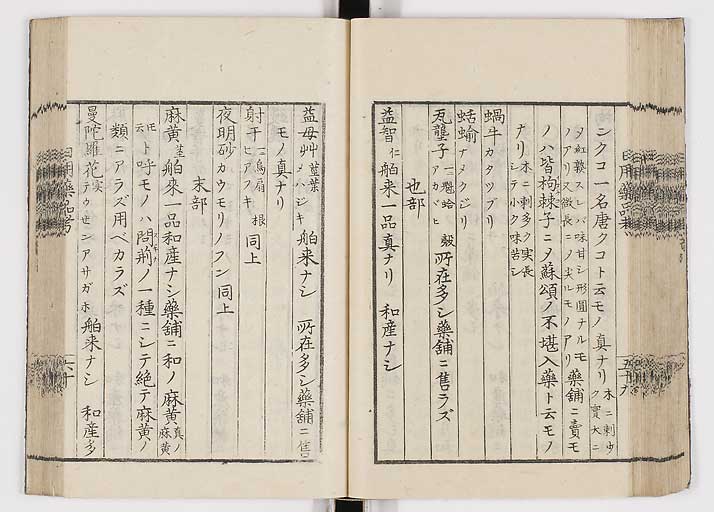 ンクコ一名唐クコト云モノ真ナリ 木ニ刺少
ク實大ニ
〆紅熟スレバ味甘シ形圓ナルモ
ノアリ又微長ニ〆尖ルモノアリ 藥舖ニ賣モ
ノハ皆枸棘子ニ〆蘇頌ノ不堪入藥ト云モノ
ナリ 木ニ刺多ク実長
シテ小ク味苦シ
蝸牛 カタツブリ
蛞蝓 ナメクジリ
瓦壟子 一名魁蛤 殻
アカヾヒ 所在多シ藥舖ニ售ラズ
也部
益智 仁 舶来一品真ナリ 和産ナシ
五十九
日用藥品考
益母艸 莖葉
メハジキ 舶來ナシ 所在多シ藥舖ニ售
モノ真ナリ
射干 一名烏扇 根
ヒアフキ 同上
夜明砂 カウモリノフン 同上
末部
麻黄 莖 舶來一品和産ナシ藥舖ニ和ノ麻黄 真ノ
麻黄
モト
云 呼モノハ問荆ノ一種ニシテ絶テ麻黄ノ
類ニアラズ用ベカラズ
曼陀羅花 実
テウセンアサガホ 舶来ナシ 和産多
六十
日用藥品考